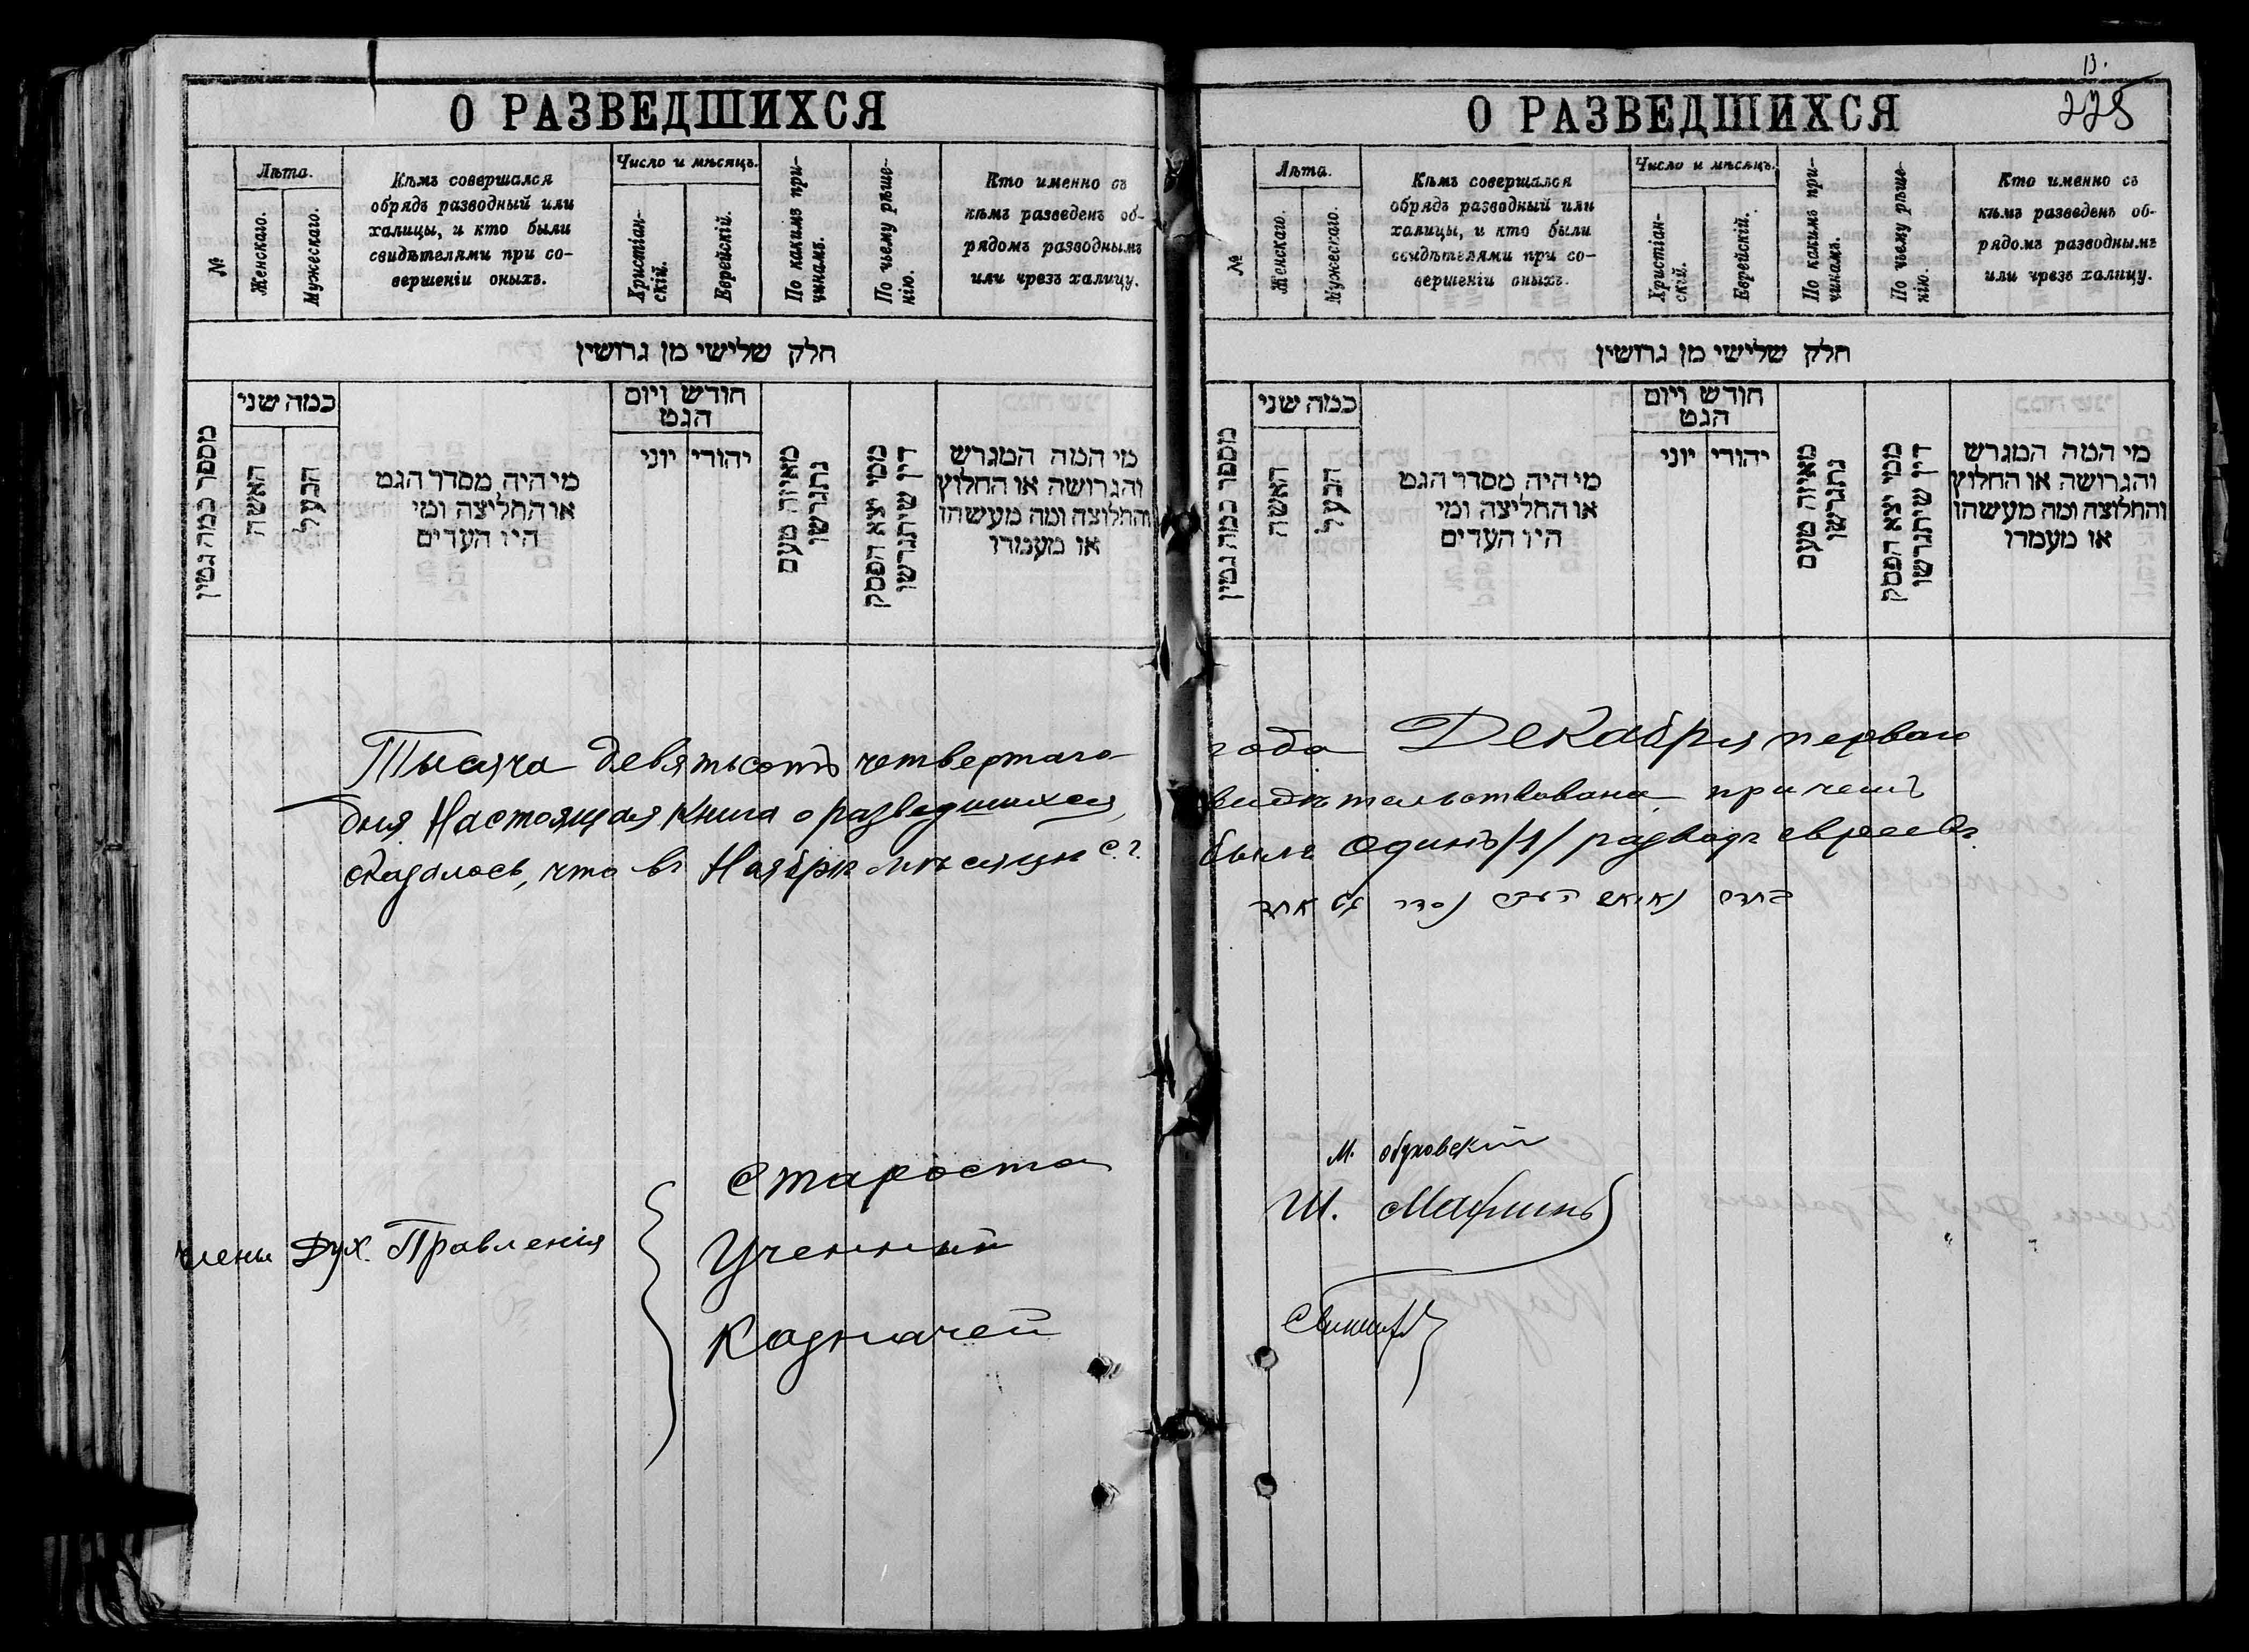 О РАЗВЕДШИХСЯ
№
Лѣта.
Женскаго.
Мужескаго.
Кѣмъ совершался
обрядъ разводный или
халицы, и кто были
свидѣтелями при со-
вершеніи оныхъ.
Число и мѣсяцъ.
Христіан-
скій.
Еврейскій.
По какимъ при-
чинамъ.
По чьему рѣше-
нію.
Кто именно съ
кѣмъ разведенъ об-
рядомъ разводнымъ
или чрезъ халицу.
חלק שלישי מן גרושין
מספר כמה גטין
כמה שני
האשה
הבעל
מי היה מסדר הגט
או החליצה ומי
היו העדים
חודש ויום
הגט
יוני
יהודי
מאיזה טעם
נתגרשו
ממי יצא הפסק
דין שיתגרשו
מי המה המגרש
והגרושה או החלוץ
והחלוצה ומה מעשהו
או מעמדו
Тысяча девятьсотъ четвертаго
дня Настоящая книга о разведшихся
оказалось, что въ Ноябрѣ мѣсяцѣ с. г.
Члены Дух. Правленія
Староста
Ученный
Казначей
13.
225
О РАЗВЕДШИХСЯ
№
Лѣта.
Женскаго.
Мужескаго.
Кѣмъ совершался
обрядъ разводный или
халицы, и кто были
свидѣтелями при со-
вершеніи оныхъ.
Число и мѣсяцъ.
Христіан-
скій.
Еврейскій.
По какимъ при-
чинамъ.
По чьему рѣше-
нію.
Кто именно съ
кѣмъ разведенъ об-
рядомъ разводнымъ
или чрезъ халицу.
חלק שלישי מן גרושין
מספר כמה גטין
כמה שני
האשה
הבעל
מי היה מסדר הגט
או החליצה ומי
היו העדים
חודש ויום
הגט
יוני
יהודי
מאיזה טעם
נתגרשו
ממי יצא הפסק
דין שיתגרשו
מי המה המגרש
והגרושה או החלוץ
והחלוצה ומה מעשהו
או מעמדו
года Декабря перваго
свидѣтельствована причемъ
былъ одинъ /1/ разводъ евреевъ.
גט אחד
М. Обуховскій
Ш.